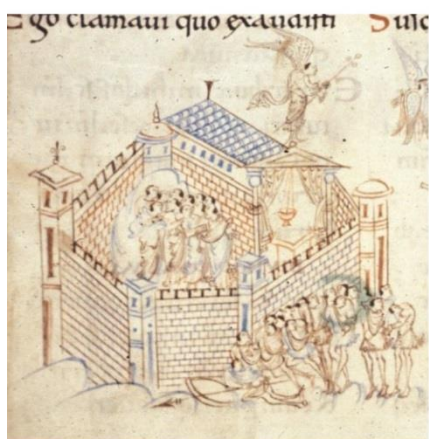 Ego clamaui quo exaudisti Susc